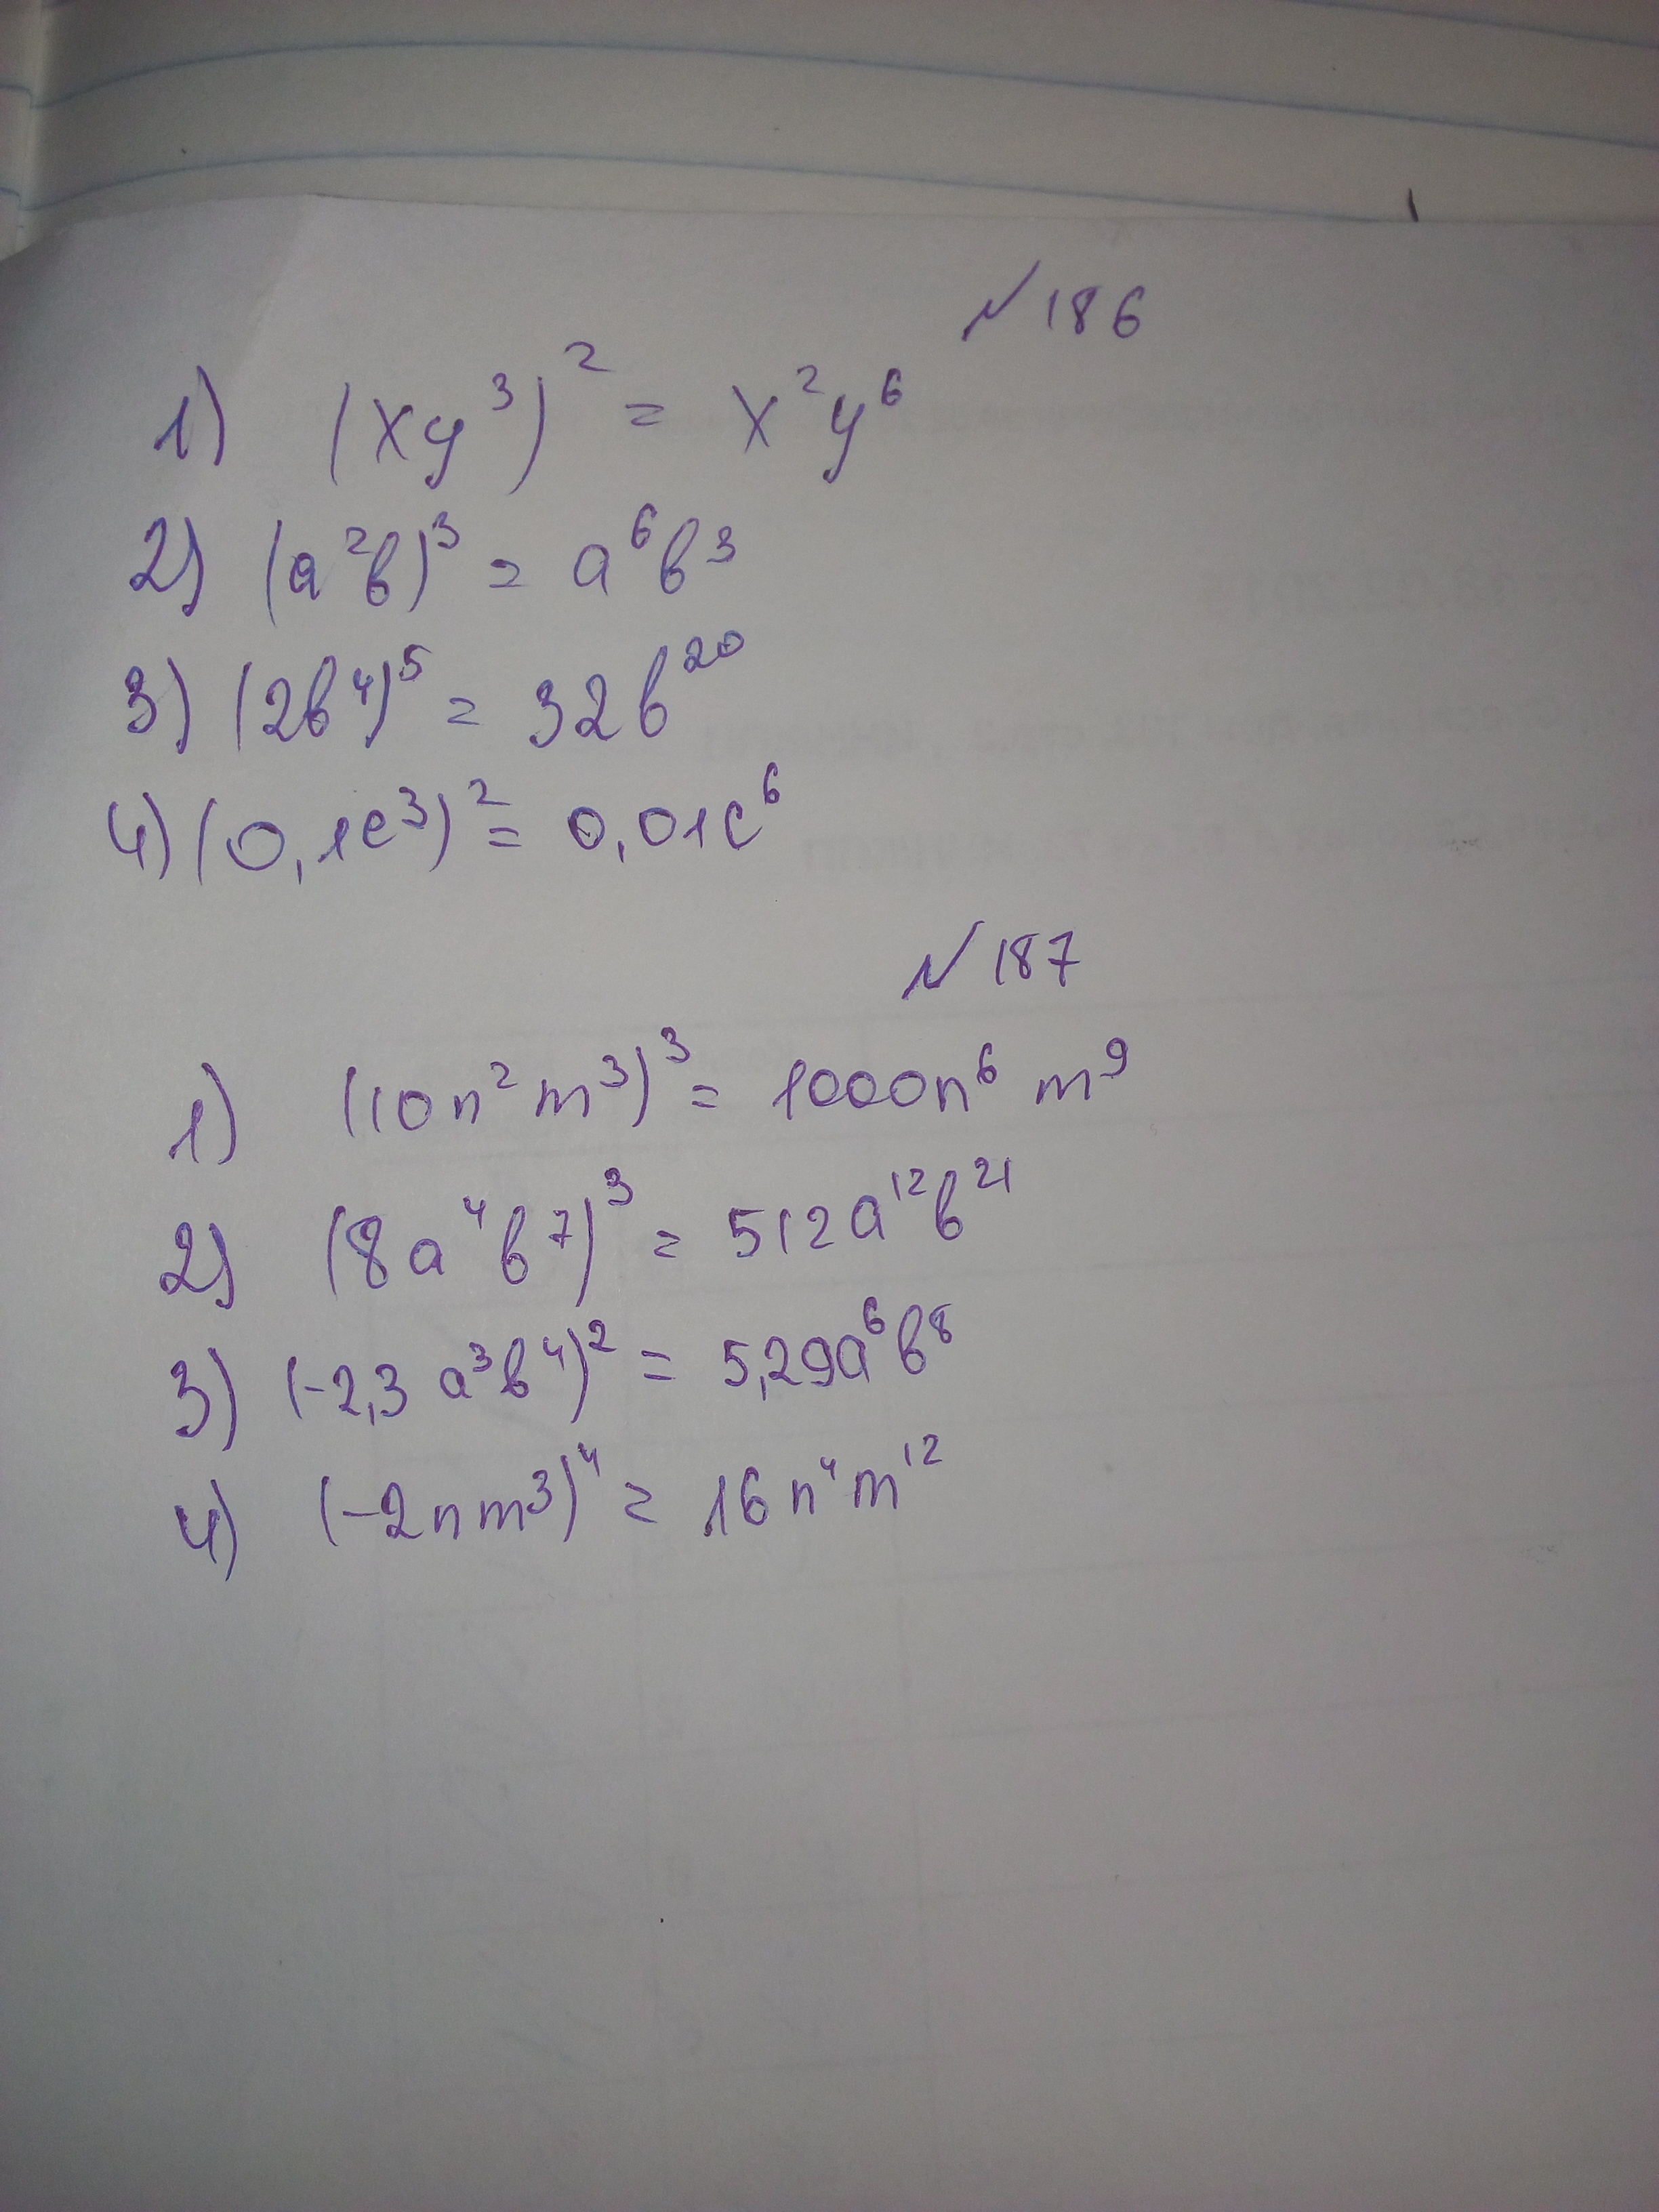 № 186
1) (xy³)² = x²y⁶
2) (a²b)³ = a⁶b³
3) (2b⁴)⁵ = 32b²⁰
4) (0,1c³)² = 0,01c⁶
№ 187
1) (10n²m³)³ = 1000n⁶m⁹
2) (8a⁴b⁷)³ = 512a¹²b²¹
3) (-2,3a³b⁴)² = 5,29a⁶b⁸
4) (-2nm³)⁴ = 16n⁴m¹²